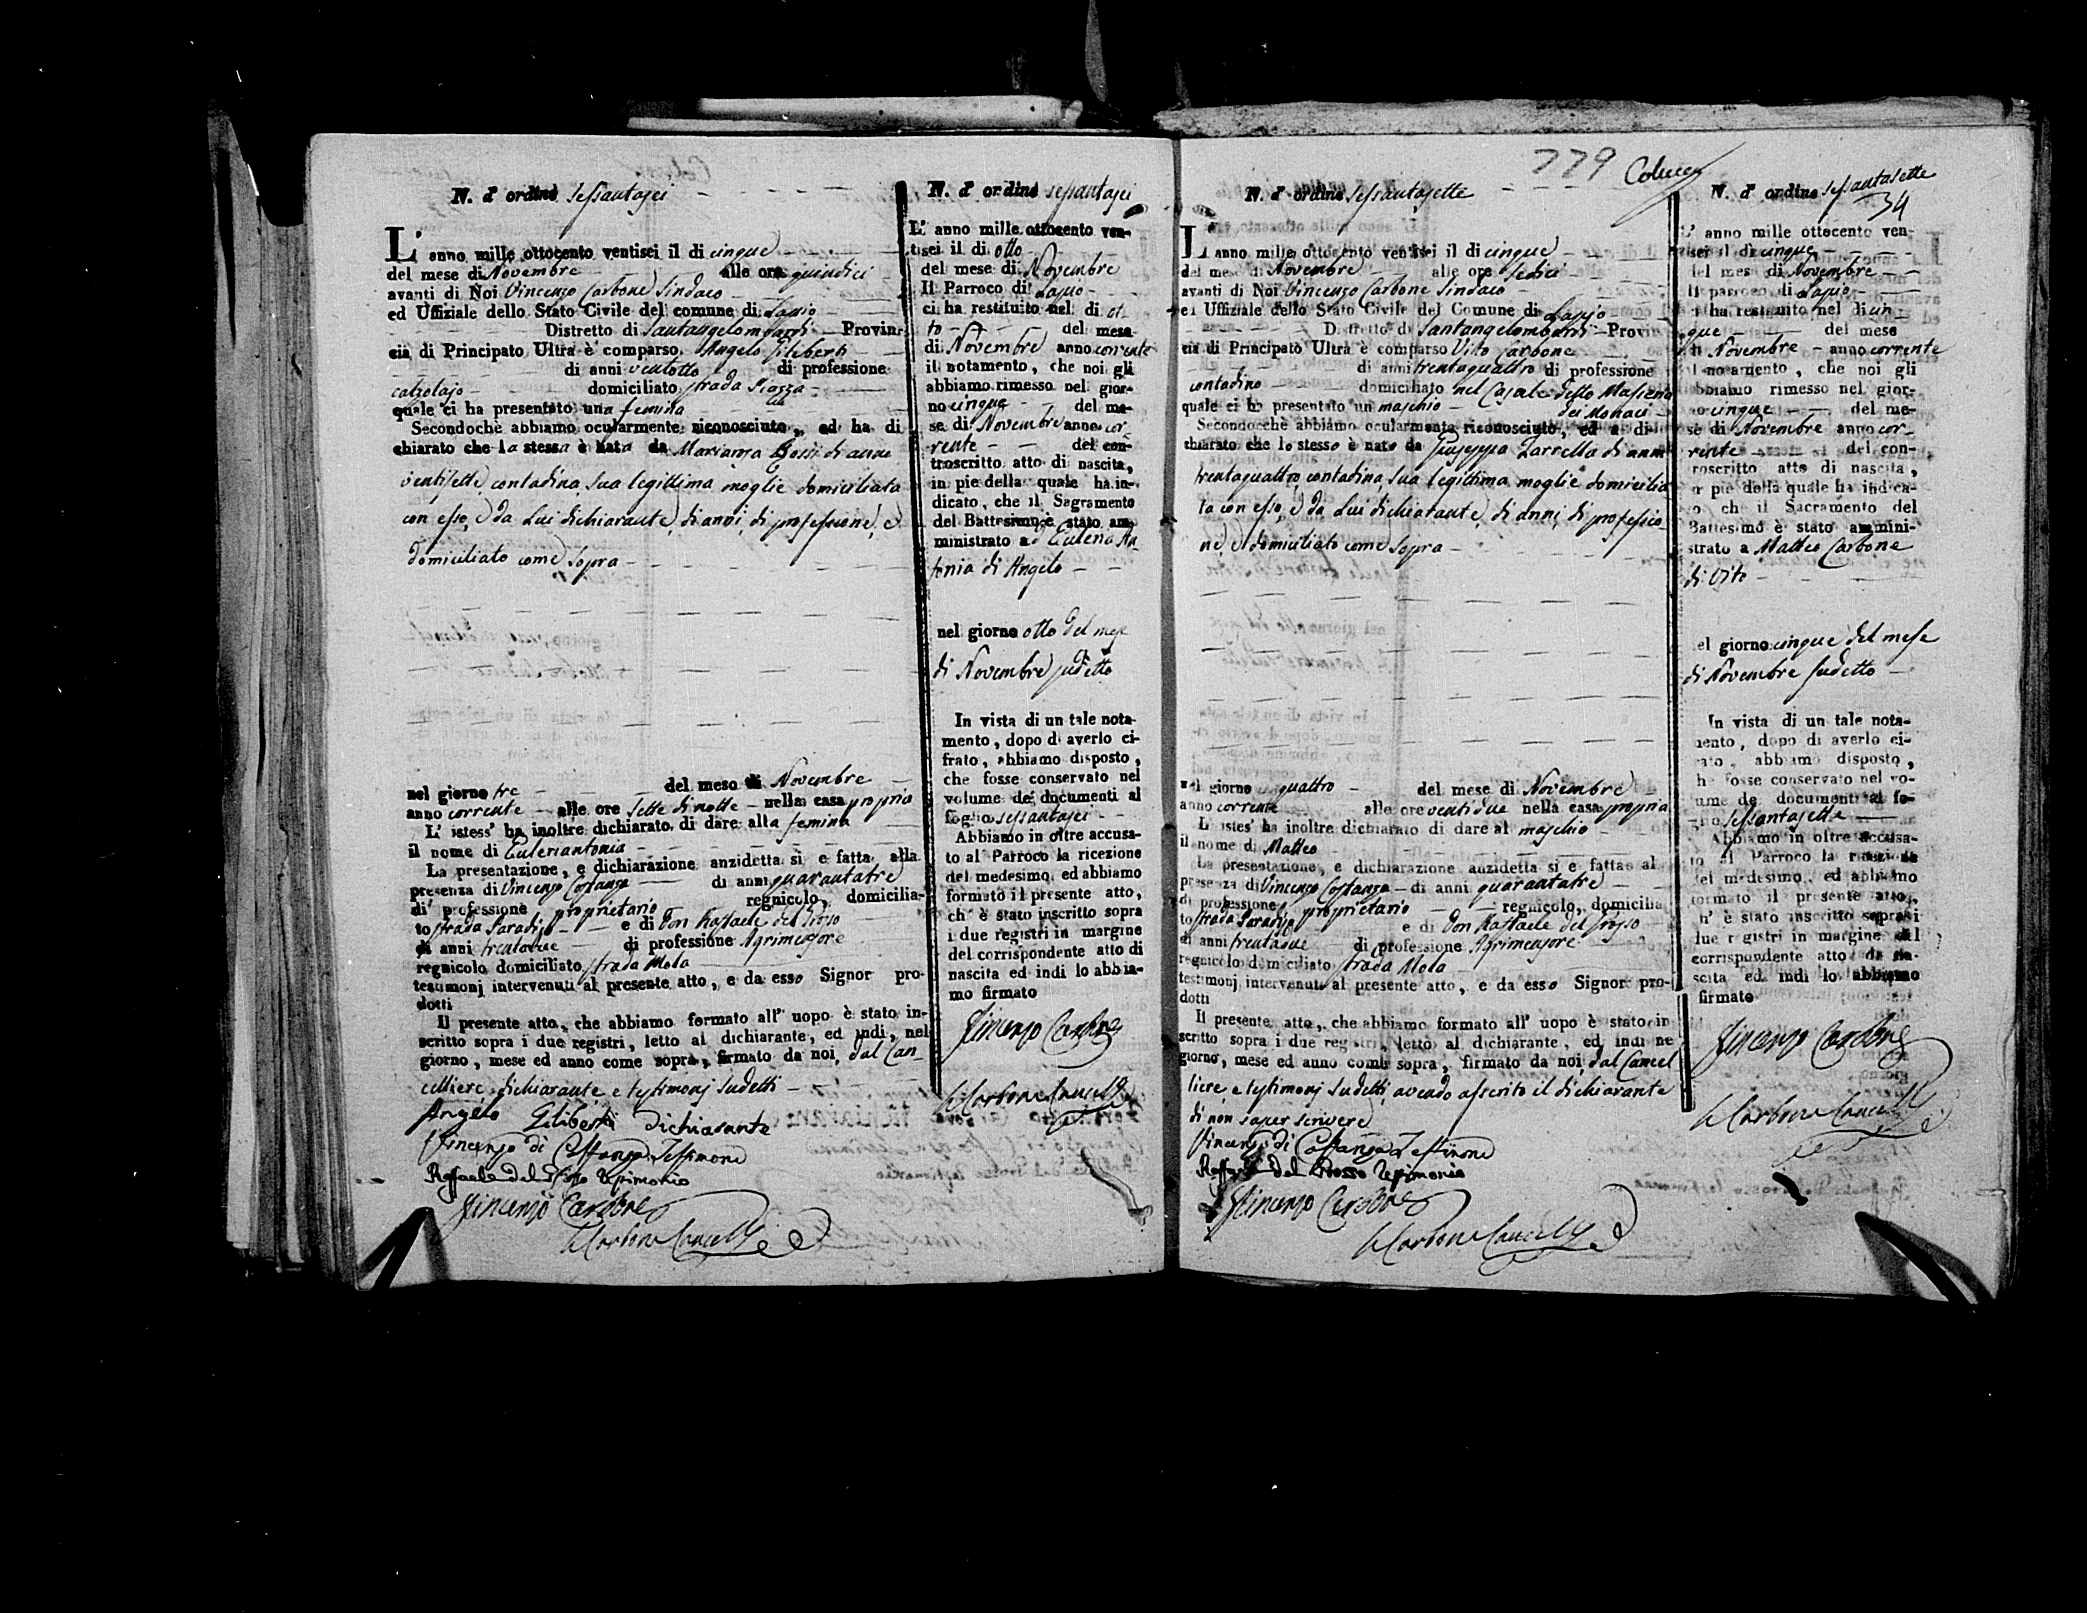 N. d' ordine sessantasei
L' anno mille ottocento ventisei il di cinque
del mese di Novembre alle ore quindici
avanti di Noi Vincenzo Carbone Sindaco
ed Uffiziale dello Stato Civile del comune di Lapio
Distretto di Santangelolombardi Provin-
cia di Principato Ultra è comparso Angelo Filiberti
di anni ventotto di professione
calzolajo domiciliato strada Piazza
quale ci ha presentato una femina
Secondochè abbiamo ocularmente riconosciuto, ed ha di
chiarato che la stessa è nata da Marianna di anni
ventisette contadina sua legittima moglie domiciliata
con esso, e da Lui dichiarante, di anni, di professione, e
domiciliato come sopra
nel giorno tre del mese di Novembre
anno corrente alle ore sette di notte nella casa propria
L' istess' ha inoltre dichiarato di dare alla femina
il nome di Euleriantonia
La presentazione, e dichiarazione anzidetta si e fatta alla
presenza di Vincenzo Costanza di anni quarantatre
di professione proprietario regnicolo, domicilia-
to strada Paradiso e di Don Raffaele del Grosso
di anni trentadue di professione Agrimensore
regnicolo domiciliato strada Mola
testimonj intervenuti al presente atto, e da esso Signor pro-
dotti
Il presente atto, che abbiamo formato all' uopo è stato in-
scritto sopra i due registri, letto al dichiarante, ed indi, nel
giorno, mese ed anno come sopra, firmato da noi, dal Can-
celliere, dichiarante e testimonj sudetti
Angelo Filiberti Dichiarante
Vincenzo di Costanza Testimone
Raffaele del Grosso Testimonio
Vincenzo Carbone
Carbone Cancell
N. d' ordine sessantasei
L' anno mille ottocento ven-
tisei il di otto
del mese di Novembre
Il Parroco di Lapio
ci ha restituito nel di ot
to del mese
di Novembre anno corrente
il notamento, che noi gli
abbiamo rimesso nel gior-
no cinque del me-
se di Novembre anno cor-
rente del con-
troscritto atto di nascita,
in pie della quale ha in-
dicato, che il Sagramento
del Battesimo è stato am-
ministrato ad Euleria An-
tonia di Angelo
nel giorno otto del mese
di Novembre sudetto
In vista di un tale nota-
mento, dopo di averlo ci-
frato, abbiamo disposto,
che fosse conservato nel
volume de' documenti al
foglio sessantasei
Abbiamo in oltre accusa-
to al Parroco la ricezione
del medesimo, ed abbiamo
formato il presente atto,
ch' è stato inscritto sopra
i due registri in margine
del corrispondente atto di
nascita ed indi lo abbia-
mo firmato
Vincenzo Carbone
Carbone Cancell
779 Colucci
N. d' ordine sessantasette
L' anno mille ottocento ventisei il di cinque
del mese di Novembre alle ore sedici
avanti di Noi Vincenzo Carbone Sindaco
ed Uffiziale dello Stato Civile del Comune di Lapio
Distretto di Santangelolombardi Provin
cia di Principato Ultra è comparso Vito Carbone
di anni trentaquattro di professione
contadino domiciliato nel Casale detto Masseria
quale ci ha presentato un maschio dei Monaci
Secondochè abbiamo ocularmente riconosciuto, ed a di-
chiarato che lo stesso è nato da Giuseppa Zarrella di anni
trentaquattro, contadina, sua legittima moglie domicilia
ta con esso, e da Lui dichiarante, di anni, di professio
ne, e domiciliato come sopra
nel giorno quattro del mese di Novembre
anno corrente alle ore ventidue nella casa propria
L' istes' ha inoltre dichiarato di dare al maschio
il nome di Matteo
La presentazione, e dichiarazione anzidetta si e fatta al
presenza di Vincenzo Costanza di anni quarantatre
di professione proprietario regnicolo, domicilia
to strada Paradiso e di Don Raffaele del Grosso
di anni trentadue di professione Agrimensore
regnicolo domiciliato strada Mola
testimonj intervenuti al presente atto, e da esso Signor pro-
dotti
Il presente atto, che abbiamo formato all' uopo è stato in
scritto sopra i due registri, letto al dichiarante, ed indi ne
giorno, mese ed anno come sopra, firmato da noi, dal Cancel
liere, e testimonj sudetti, avendo asserito il dichiarante
di non saper scrivere
Vincenzo di Costanza Testimone
Raffaele del Grosso Testimonio
Vincenzo Carbone
Carbone Cancell
N. d' ordine sessantasette
34
L' anno mille ottocento ven-
tisei il di cinque
del mese di Novembre
Il parroco di Lapio
ci ha restituito nel di cin-
que del mese
di Novembre anno corrente
il notamento, che noi gli
abbiamo rimesso nel gior-
no cinque del me-
se di Novembre anno cor-
rente del con-
troscritto atto di nascita,
in pie della quale ha indica-
to, ch il Sacramento del
Battesimo è stato ammini-
strato a Matteo Carbone
di Vito
nel giorno cinque del mese
di Novembre sudetto
In vista di un tale nota-
mento, dopo di averlo ci-
frato, abbiamo disposto,
che fosse conservato nel vo-
lume de documenti al fo-
glio sessantasette
Abbiamo in oltre accusa-
to al Parroco la ricezione
del medesimo, ed abbiamo
formato il presente atto,
ch' è stato inscritto sopra i
due registri in margine del
corrispondente atto di na-
scita ed indi lo abbiamo
firmato
Vincenzo Carbone
Carbone Cancell